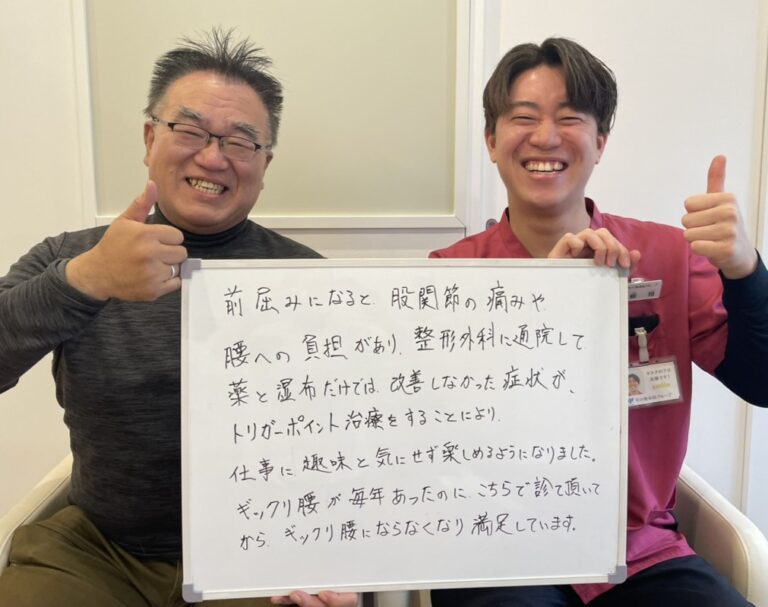 前屈みになると、股関節の痛みや
腰への負担があり、整形外科に通院して
薬と湿布だけでは、改善しなかった症状が、
トリガーポイント治療をすることにより、
仕事に趣味と気にせず楽しめるようになりました。
ギックリ腰が毎年あったのに、こちらで診て頂いて
から、ギックリ腰にならなくなり満足しています。